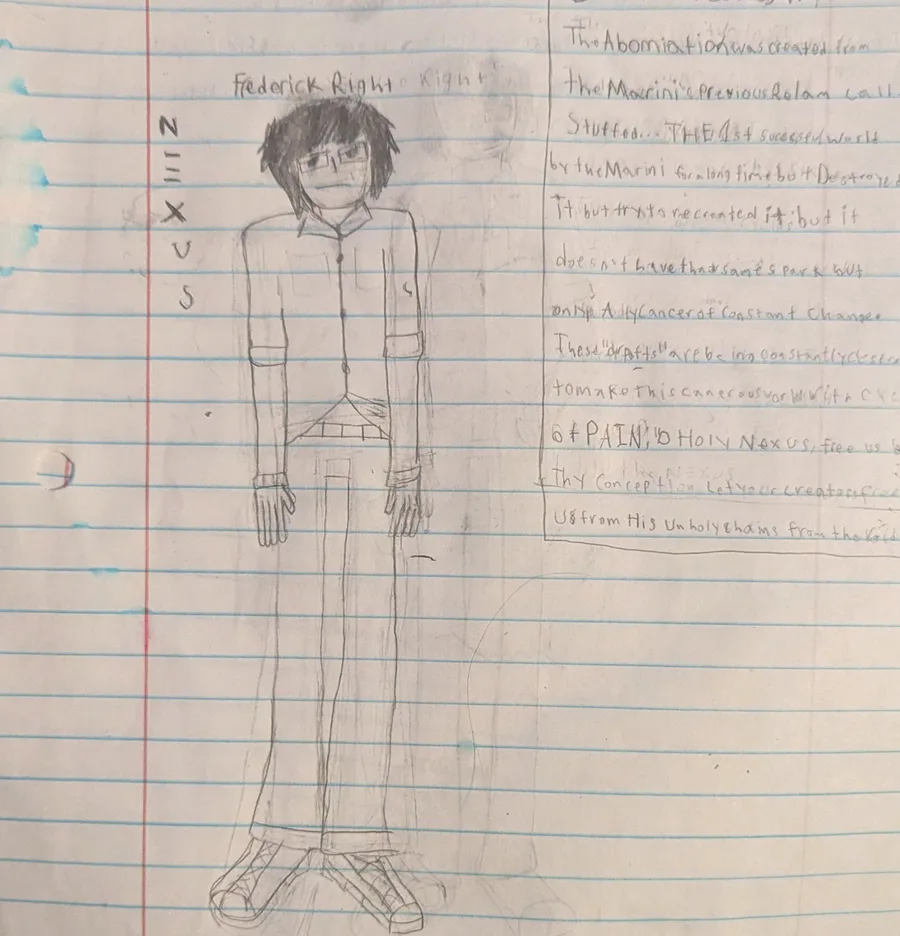 Frederick Right Right
N
E
X
U
S
The Abomiation was created from
the Marini's Previous Rolam call
Stuffed... THE 1st sucessful world
by the Marini for a long time but Destroyed
it but trys to recreated it, but it
doesn't have that same spark but
only A Hy Cancer of Constant Change
These "drafts" are being constantly
to make this cancerous world with
of PAIN, "O Holy Nexus, free us
Thy Conception Let your creators free
us from His Unholy chains from the Void